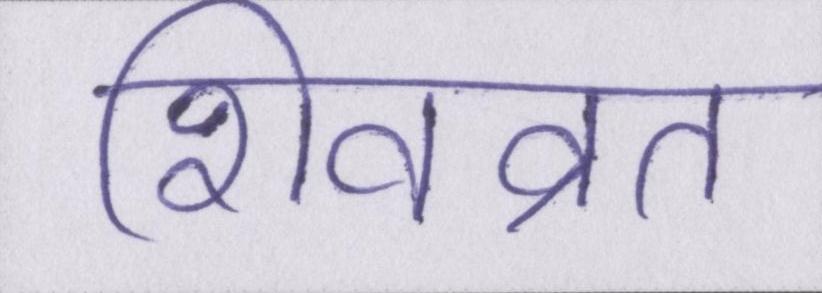 शिवव्रत